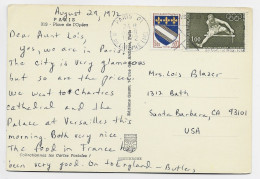 August 29, 1972
PARIS
Place de l'Opéra
Dear Aunt Lois,
Yes, we are in Paris.
The city is very glamorous
but so are the prices
We went to Chartres
cathedral and the
Palace at Versailles this
morning. Both very nice
The food in France has
been very good. On to England - Butlers
1.00
Mrs. Lois Blazer
1312 Bath
Santa Barbara, CA 93101
USA